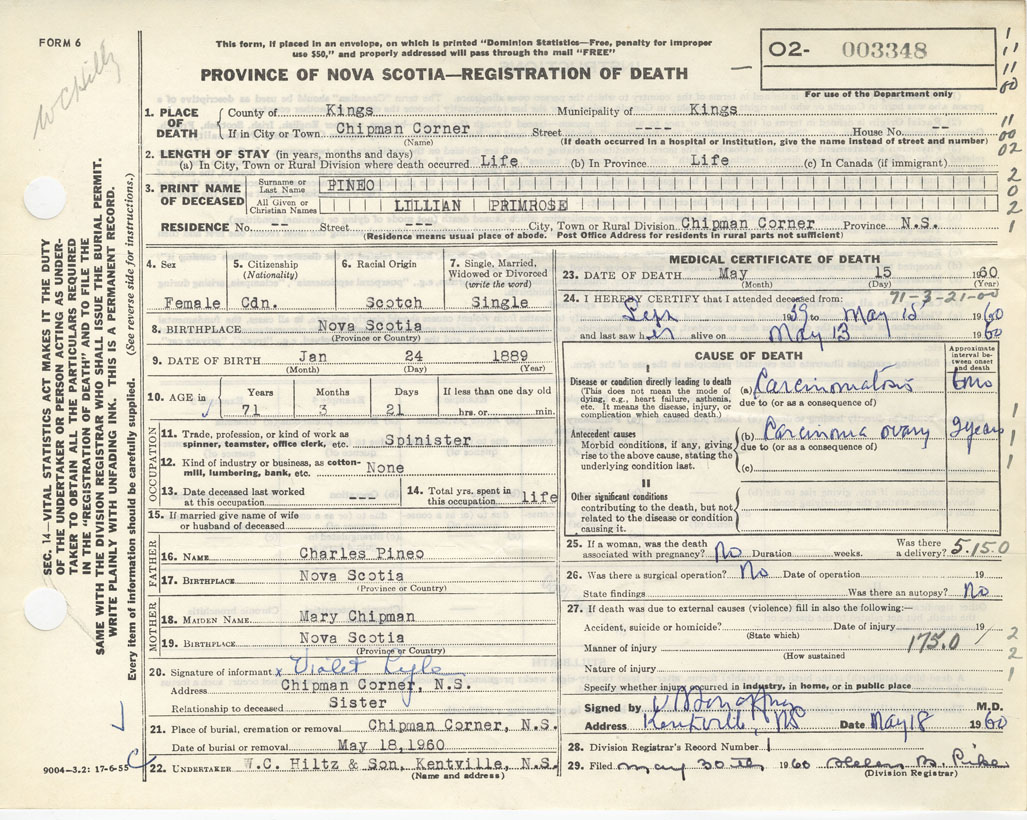 FORM 6
This form, if placed in an envelope, on which is printed "Dominion Statistics—Free, penalty for improper
use $50," and properly addressed will pass through the mail "FREE"
PROVINCE OF NOVA SCOTIA—REGISTRATION OF DEATH
02- 003348
For use of the Department only
1. PLACE OF DEATH { County of Kings Municipality of Kings
If in City or Town Chipman Corner Street ---- House No. --
(Name) (If death occurred in a hospital or institution, give the name instead of street and number)
2. LENGTH OF STAY (in years, months and days)
(a) In City, Town or Rural Division where death occurred Life (b) In Province Life (c) In Canada (if immigrant)
3. PRINT NAME OF DECEASED
Surname or Last Name PINEO
All Given or Christian Names LILLIAN PRIMROSE
RESIDENCE No. -- Street --- City, Town or Rural Division Chipman Corner Province N.S.
(Residence means usual place of abode. Post Office Address for residents in rural parts not sufficient)
4. Sex Female
5. Citizenship (Nationality) Cdn.
6. Racial Origin Scotch
7. Single, Married, Widowed or Divorced (write the word) Single
8. BIRTHPLACE Nova Scotia
(Province or Country)
9. DATE OF BIRTH Jan 24 1889
(Month) (Day) (Year)
10. AGE in Years Months Days If less than one day old
71 3 21 hrs. or min.
OCCUPATION
11. Trade, profession, or kind of work as
spinner, teamster, office clerk, etc. Spinister
12. Kind of industry or business, as cotton-
mill, lumbering, bank, etc. None
13. Date deceased last worked
at this occupation ---
14. Total yrs. spent in
this occupation life
15. If married give name of wife
or husband of deceased
FATHER
16. NAME Charles Pineo
17. BIRTHPLACE Nova Scotia
(Province or Country)
MOTHER
18. MAIDEN NAME Mary Chipman
19. BIRTHPLACE Nova Scotia
(Province or Country)
20. Signature of informant x Violet Lyle
Address Chipman Corner, N.S.
Relationship to deceased Sister
21. Place of burial, cremation or removal Chipman Corner, N.S.
Date of burial or removal May 18,1960
22. UNDERTAKER W.C. Hiltz & Son, Kentville, N.S.
(Name and address)
MEDICAL CERTIFICATE OF DEATH
23. DATE OF DEATH May 15 1960
(Month) (Day) (Year)
24. I HEREBY CERTIFY that I attended deceased from: 71-3-21-00
Sept 1959 to May 15 1960
and last saw her alive on May 13 1960
CAUSE OF DEATH
Approximate interval between onset and death
I
Disease or condition directly leading to death
(This does not mean the mode of
dying, e.g., heart failure, asthenia,
etc. It means the disease, injury, or
complication which caused death.)
(a) Carcinomatosis 6 mo
due to (or as a consequence of)
Antecedent causes
Morbid conditions, if any, giving
rise to the above cause, stating the
underlying condition last.
(b) Carcinoma ovary 2 years
due to (or as a consequence of)
(c)
II
Other significant conditions
contributing to the death, but not
related to the disease or condition
causing it.
25. If a woman, was the death
associated with pregnancy? No Duration weeks. Was there a delivery? 5.15.0
26. Was there a surgical operation? No Date of operation 19
State findings Was there an autopsy? No
27. If death was due to external causes (violence) fill in also the following:—
Accident, suicide or homicide? Date of injury 19
(State which)
Manner of injury 175.0
(How sustained
Nature of injury
Specify whether injury occurred in industry, in home, or in public place
Signed by M.D.
Address Kentville, NS Date May 18 1960
28. Division Registrar's Record Number 1
29. Filed May 30th 1960 Helen B. Pike
(Division Registrar)
SEC. 14—VITAL STATISTICS ACT MAKES IT THE DUTY
OF THE UNDERTAKER OR PERSON ACTING AS UNDER-
TAKER TO OBTAIN ALL THE PARTICULARS REQUIRED
IN THE "REGISTRATION OF DEATH" AND TO FILE THE
SAME WITH THE DIVISION REGISTRAR WHO SHALL ISSUE THE BURIAL PERMIT.
WRITE PLAINLY WITH UNFADING INK. THIS IS A PERMANENT RECORD.
Every item of information should be carefully supplied. (See reverse side for instructions.)
9004—3.2: 17-6-55